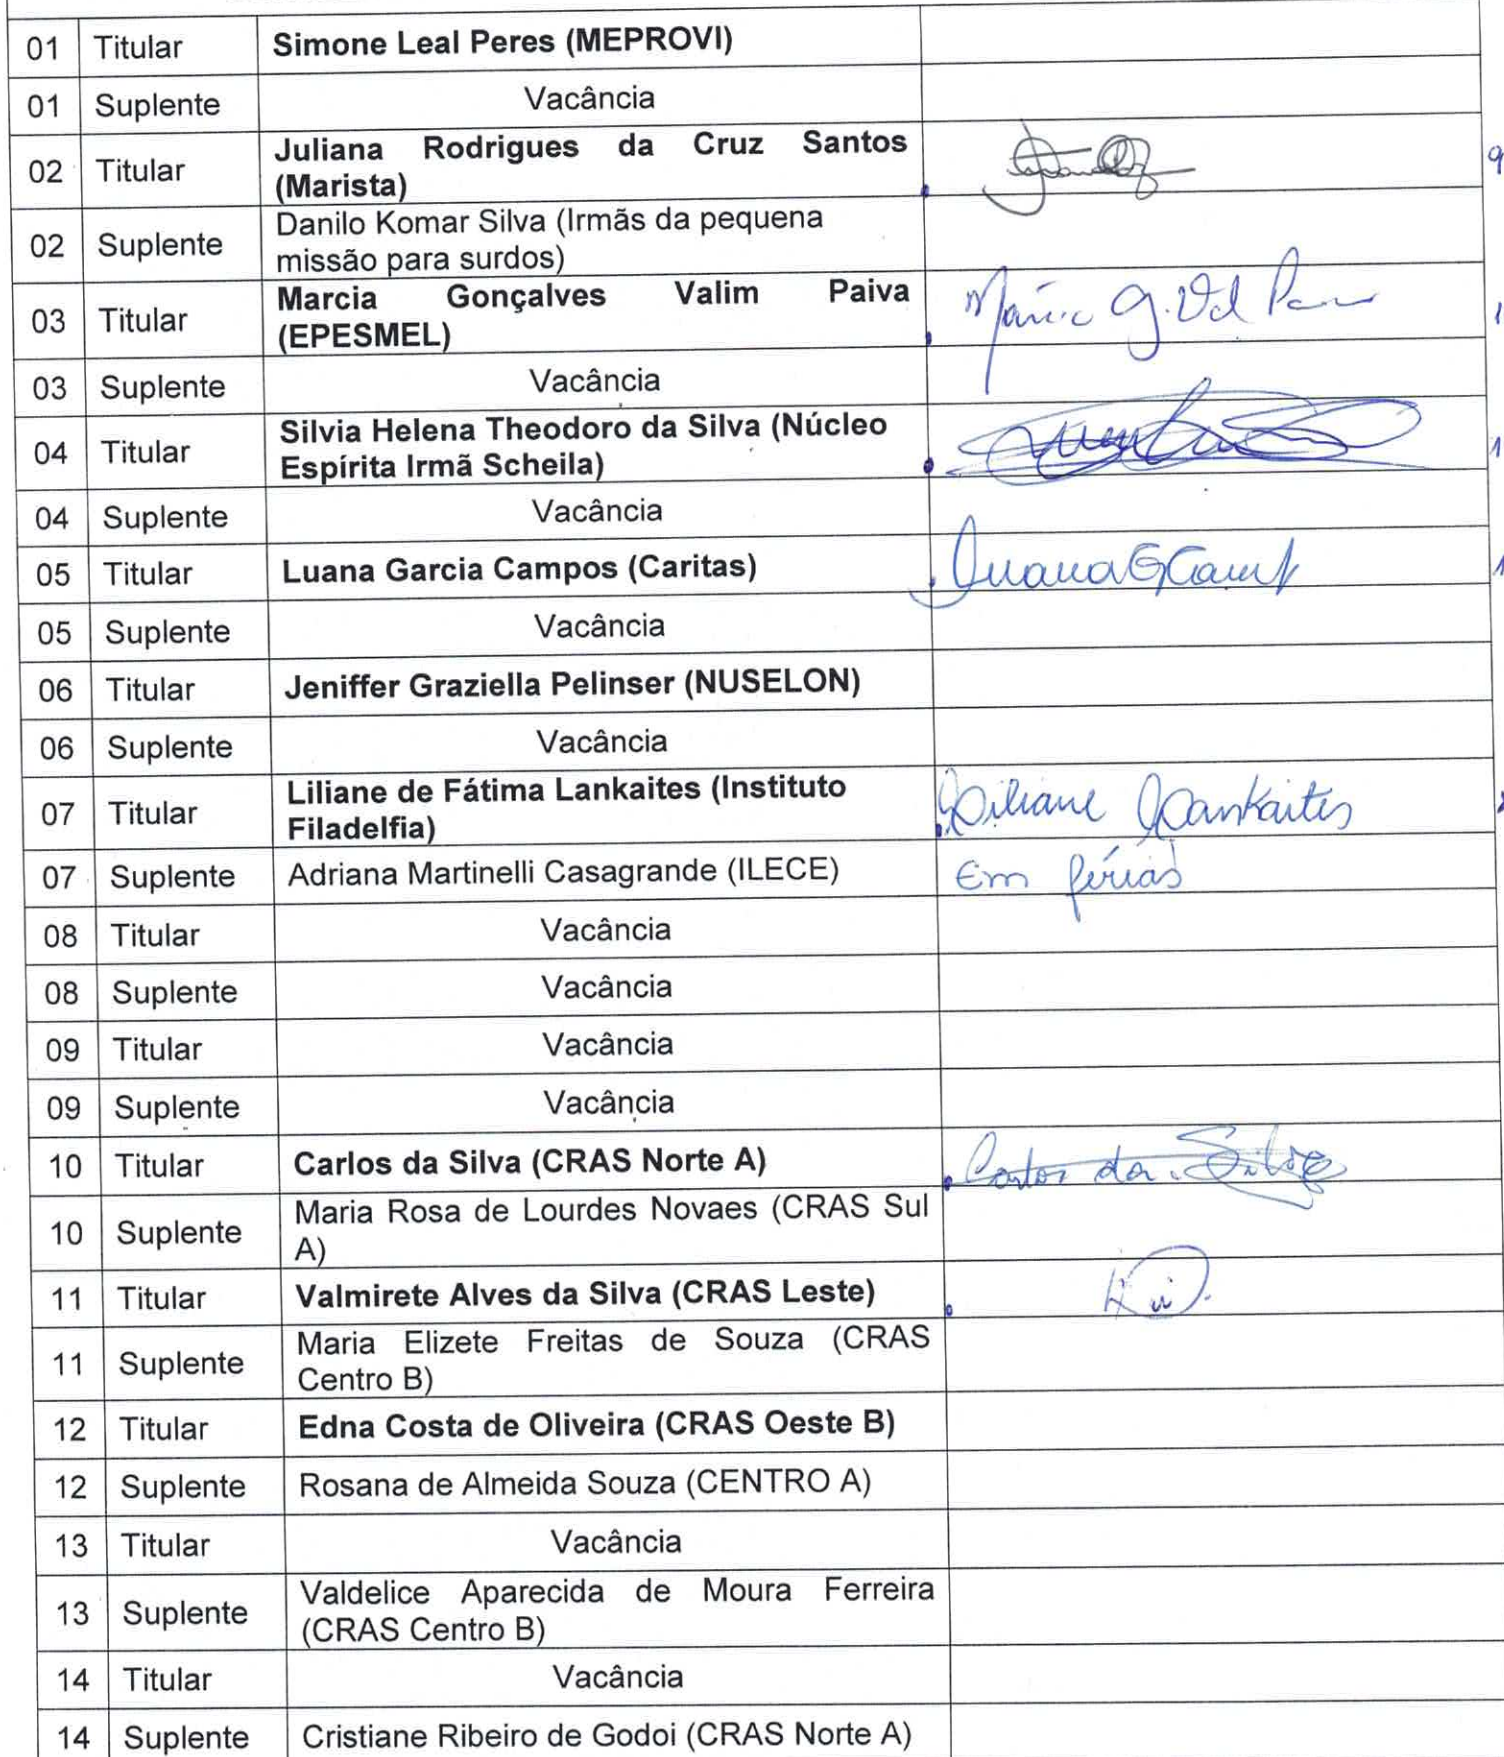 01 Titular Simone Leal Peres (MEPROVI)
01 Suplente Vacância
02 Titular Juliana Rodrigues da Cruz Santos
(Marista)
02 Suplente Danilo Komar Silva (Irmãs da pequena
missão para surdos)
03 Titular Marcia Gonçalves Valim Paiva
(EPESMEL)
03 Suplente Vacância
04 Titular Silvia Helena Theodoro da Silva (Núcleo
Espírita Irmã Scheila)
04 Suplente Vacância
05 Titular Luana Garcia Campos (Caritas)
05 Suplente Vacância
06 Titular Jeniffer Graziella Pelinser (NUSELON)
06 Suplente Vacância
07 Titular Liliane de Fátima Lankaites (Instituto Liliane Lankaites
Filadelfia)
07 Suplente Adriana Martinelli Casagrande (ILECE) Em férias
08 Titular Vacância
08 Suplente Vacância
09 Titular Vacância
09 Suplente Vacância
10 Titular Carlos da Silva (CRAS Norte A) Carlos da Silva
10 Suplente Maria Rosa de Lourdes Novaes (CRAS Sul
A)
11 Titular Valmirete Alves da Silva (CRAS Leste)
11 Suplente Maria Elizete Freitas de Souza (CRAS
Centro B)
12 Titular Edna Costa de Oliveira (CRAS Oeste B)
12 Suplente Rosana de Almeida Souza (CENTRO A)
13 Titular Vacância
13 Suplente Valdelice Aparecida de Moura Ferreira
(CRAS Centro B)
14 Titular Vacância
14 Suplente Cristiane Ribeiro de Godoi (CRAS Norte A)